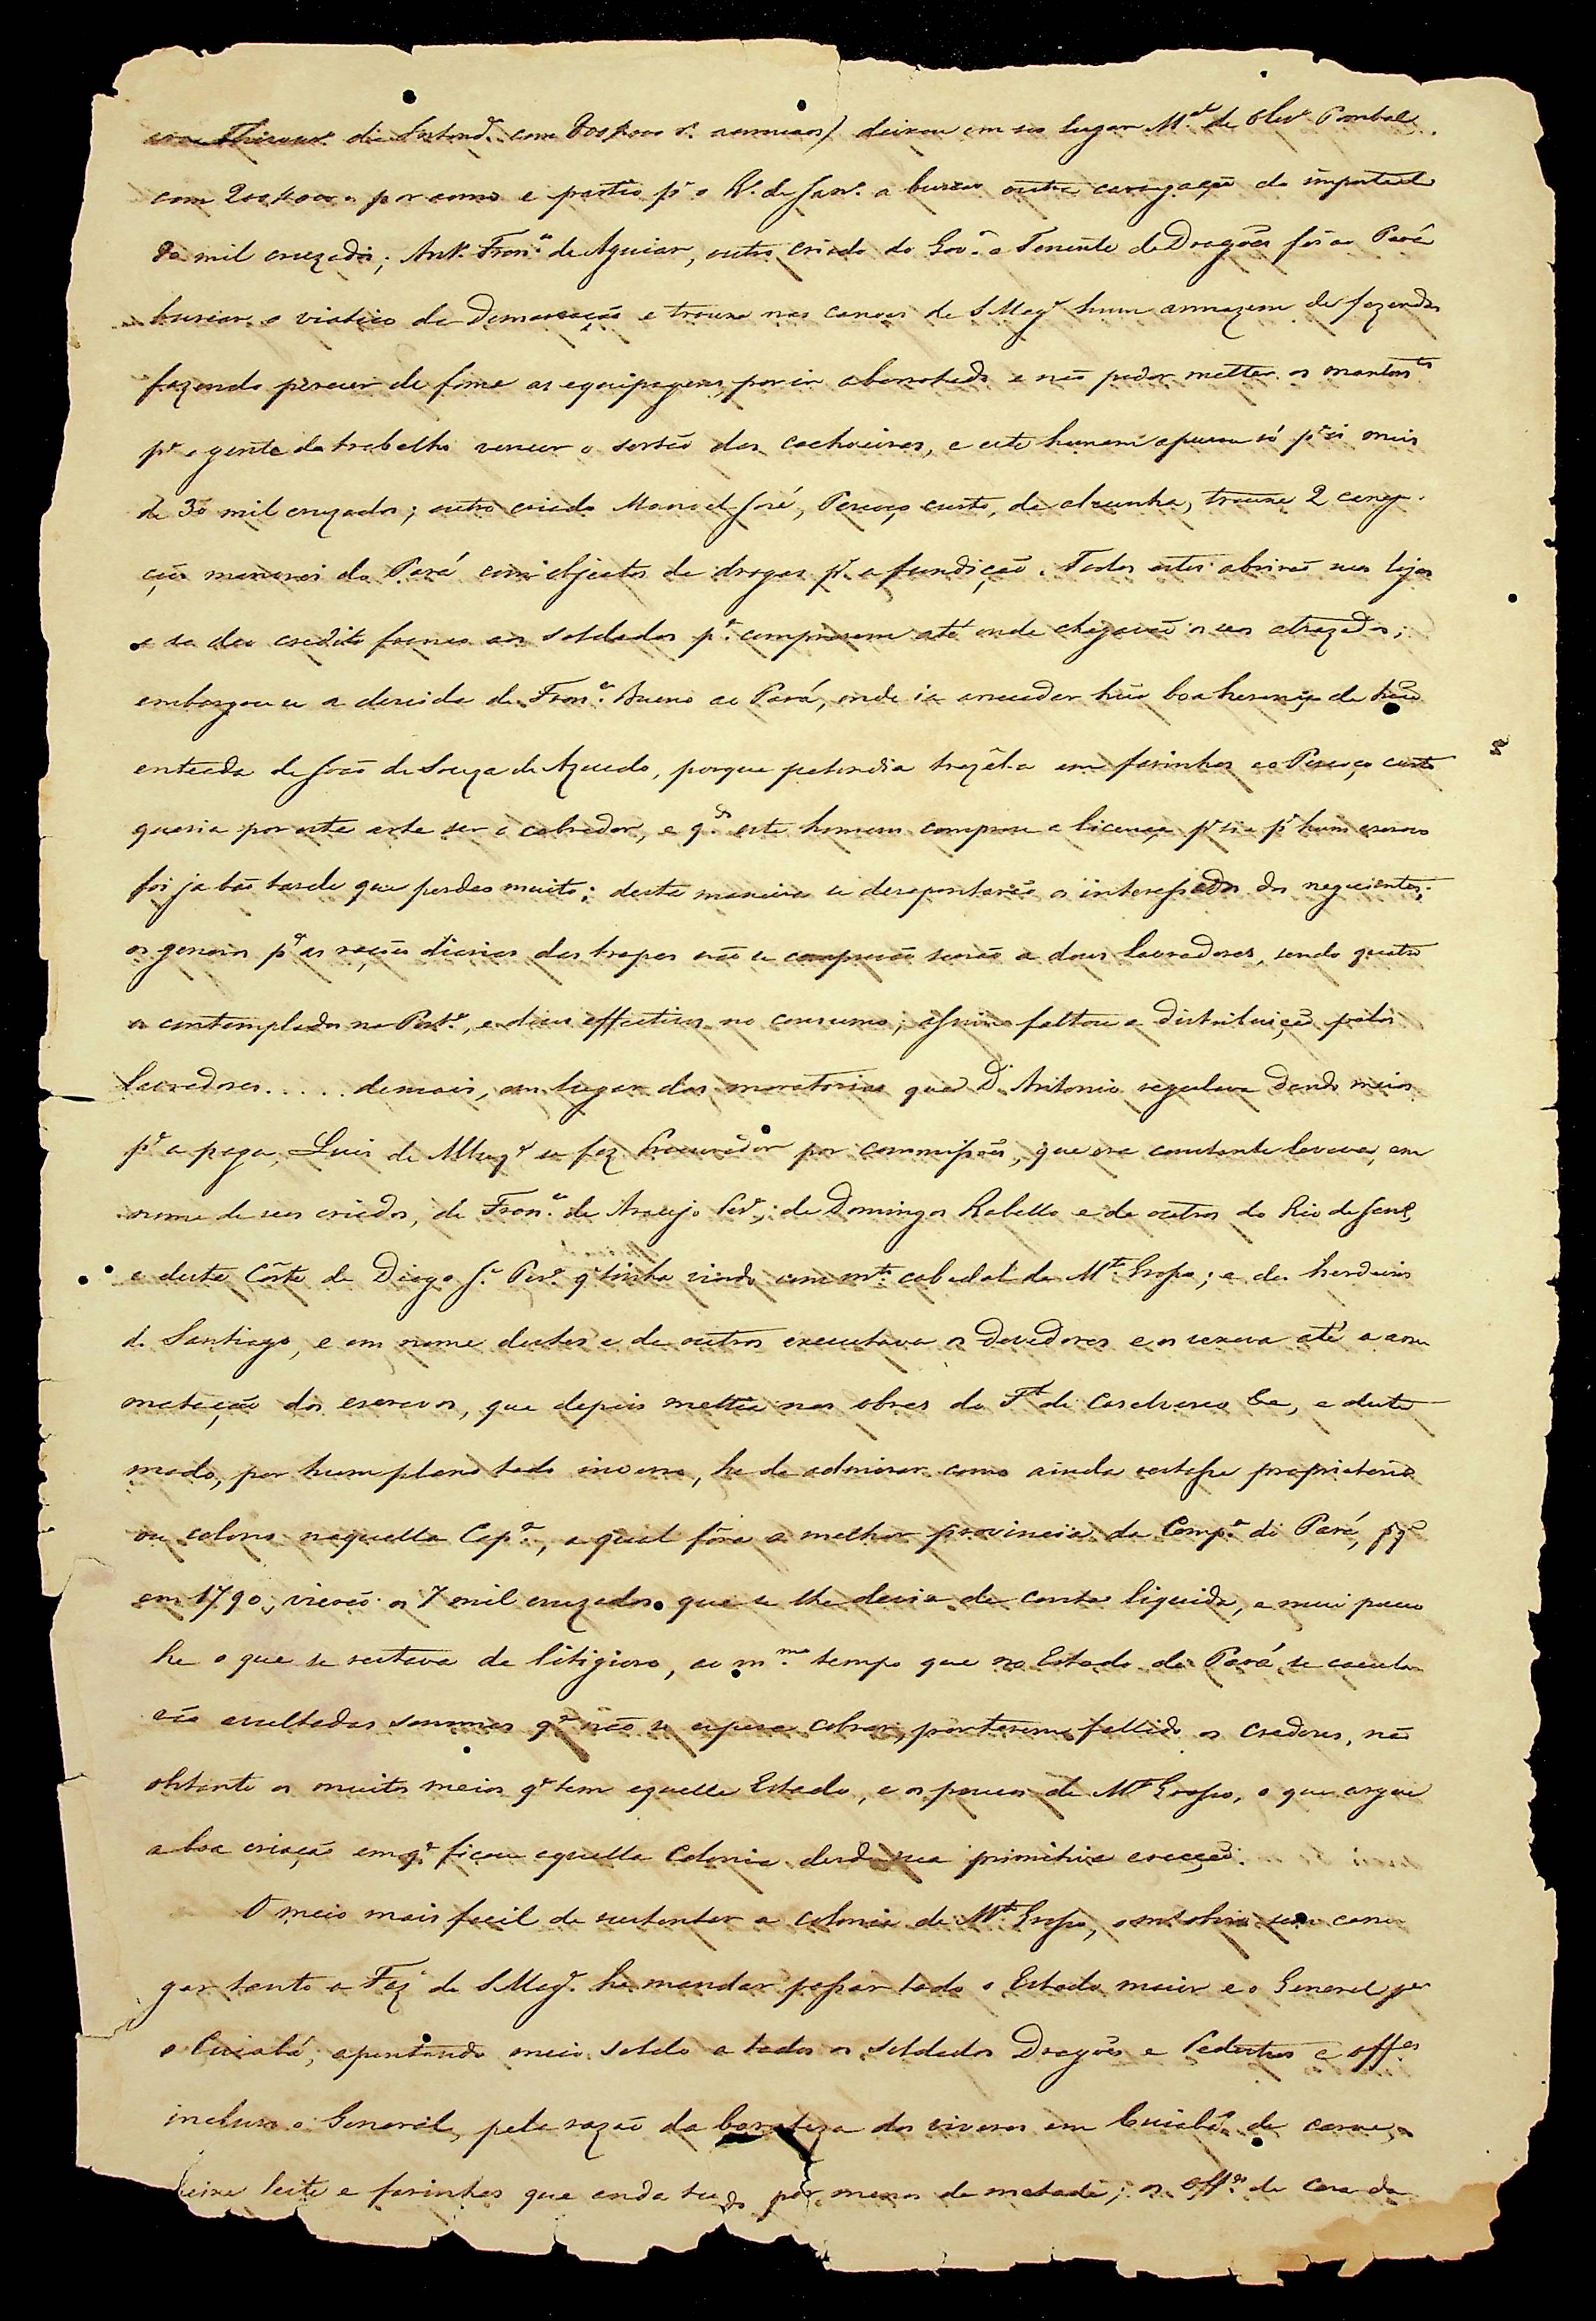 era Thesour.º da Intend.ª com 800$000 r.s annuaes) deixou em seo lugar M.el de Oliv.ª Pombal
com 200$000 por anno e partio p.ª o R.º de Jan.º a buscar outra carregação do importante
de mil cruzados; Ant.º Fran.co de Aguiar, outro criado do Gov.or e Tenente de Dragões foi ao Pará
buscar o viatico da Demarcação e trouxe nas canoas de S Mag.e hum armazem de fazendas
fazendo perecer de fome as equipagens, por ir aborrotado e não poder metter os mantim.tos
p.ª a gente do trabalho vencer o sertão das cachoeiras, e este homem apurou só p.ª si mais
de 30 mil cruzados; outro criado Manoel José, Pescoço curto, de alcunha, trouxe 2 carrega-
ções menores do Pará com objectos de drogas p.ª a fundição. Todos estes abrirão suas lojas
e se deo credito franco aos soldados p.ª comprarem até onde chegavão os seus atrazados;
embargou se a descida de Fran.co Bueno ao Pará, onde ia arrecadar hũa boa herança de hũa
enteada de João de Souza de Azevedo, porque pertendia trazêla em farinhas e o Pescoço curto
queria por esta arte ser o cobrador, e q.do este homem comprou a licença p.ª si e p.ª hum escravo
foi ja tão tarde que perdeo muito; desta maneira se desapontarão os interessados dos negociantes;
os generos p.ª as rações diarias das tropas não se compravão senão a dous lavradores, sendo quatro
os contemplados na Port.ª, e dous effectivos no consumo; assim faltou a distribuição pelos
lavradores..... demais, em lugar das moratorias que D. Antonio regulava dando meios
p.ª a paga, Luis de Albuq.e se fez Procurador por commissão, que era constante levava, em
nome de seus criados, de Fran.co de Araujo Per.ª, de Domingos Rabello e de outros do Rio de Jan.º,
e desta Côrte de Diogo J.e Per.ª q.e tinha vindo com m.to cabedal de M.to Grosso; e dos herdeiros
de Santiago, e em nome destes e de outros executava os Devedores e os vexava até a arre-
matação dos escravos, que depois mettia nas obras do F.te de Casalvasco &a, e deste
modo, por hum plano todo inverso, he de admirar como ainda restasse proprietario
ou colono naquella Cap.nia, a qual fôra a melhor provincia da Comp.ª do Pará, p.q.e
em 1790, vierão os 7 mil cruzados que se lhe devia de conta liquida, e mui pouco
he o que se restava de litigioso, ao m.mo tempo que no Estado do Pará se executa-
rão avultadas sommas q.e não se espera cobrar, por terem fallido os credores, não
obstante os muitos meios q.e tem aquelle Estado, e os poucos de M.to Grosso, o que argue
a boa criação em q.e ficou aquella Colonia desde sua primitiva erecção.
O meio mais facil de sustentar a colonia de M.to Grosso, sem carre-
gar tanto a Faz.ª de S Mag.e he mandar passar todo o Estado maior e o General p.ª
o Cuiabá, apontando meio soldo a todos os soldados Dragões e Pedestres e off.es
incluso o General, pela razão da barateza dos viveres em Cuiabá de carne,
peixe leite e farinhas que anda tudo por menos de metade; os off.es de casa da